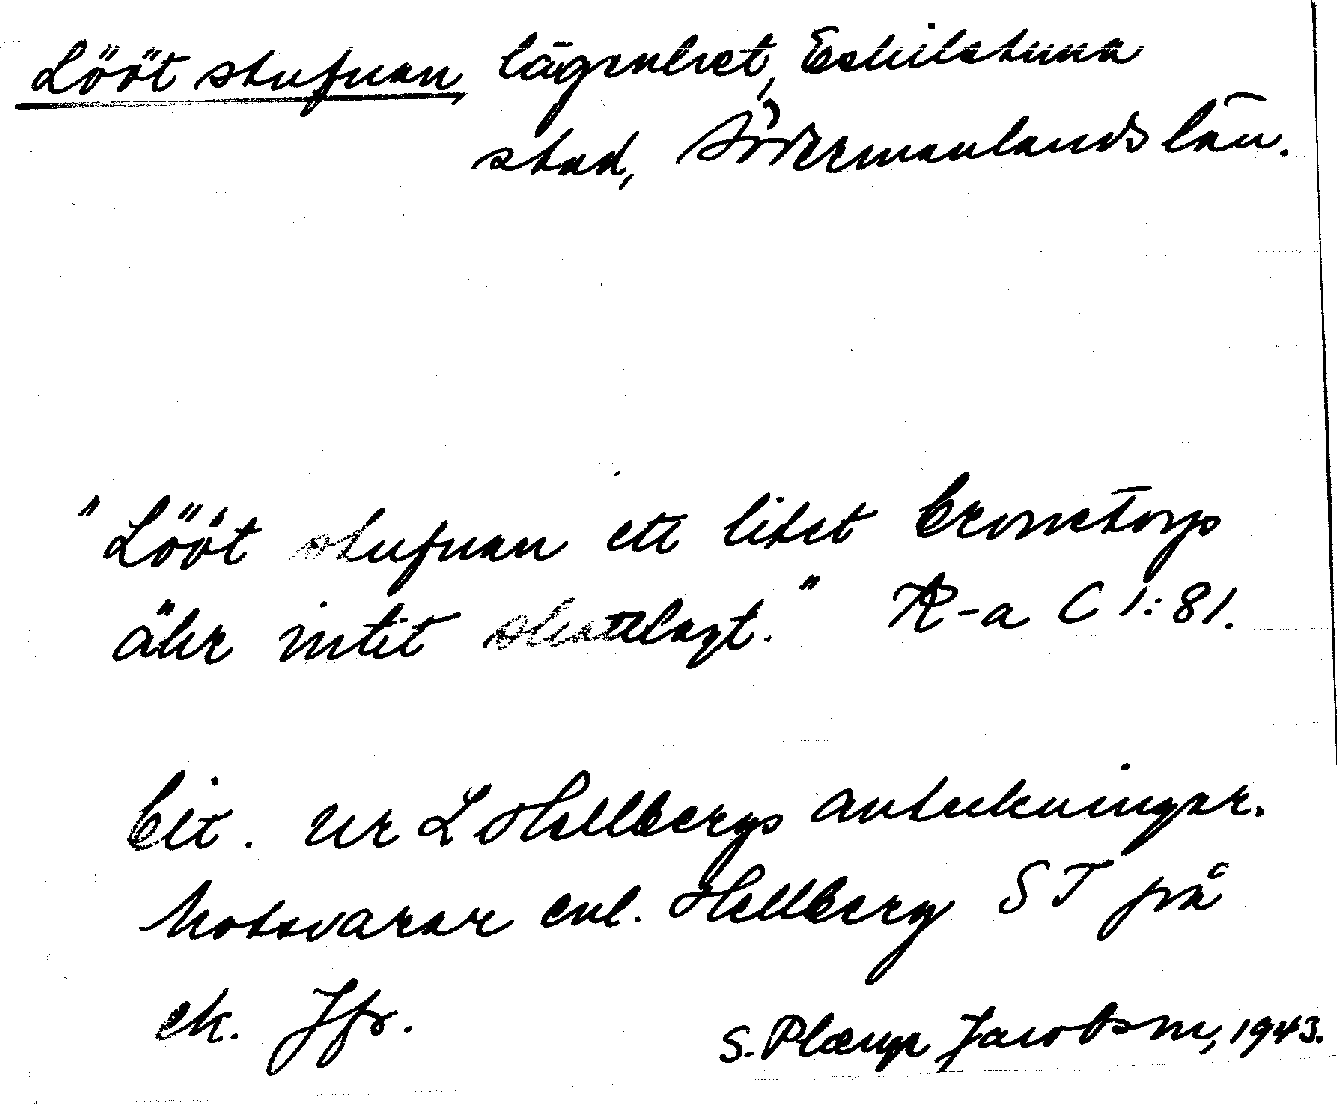 Lööt stufuan, lägenhet, Eskilstuna
stad, Södermanlands län.
"Lööt stufuan ett litet Cronetorp
ähr intit skattlagt." R-a C 1:81.
Cit. ur L Hellbergs anteckningar.
Motsvarar enl. Hellberg ST på
ek. Jfr.
S. Plærup Jacobson, 1943.